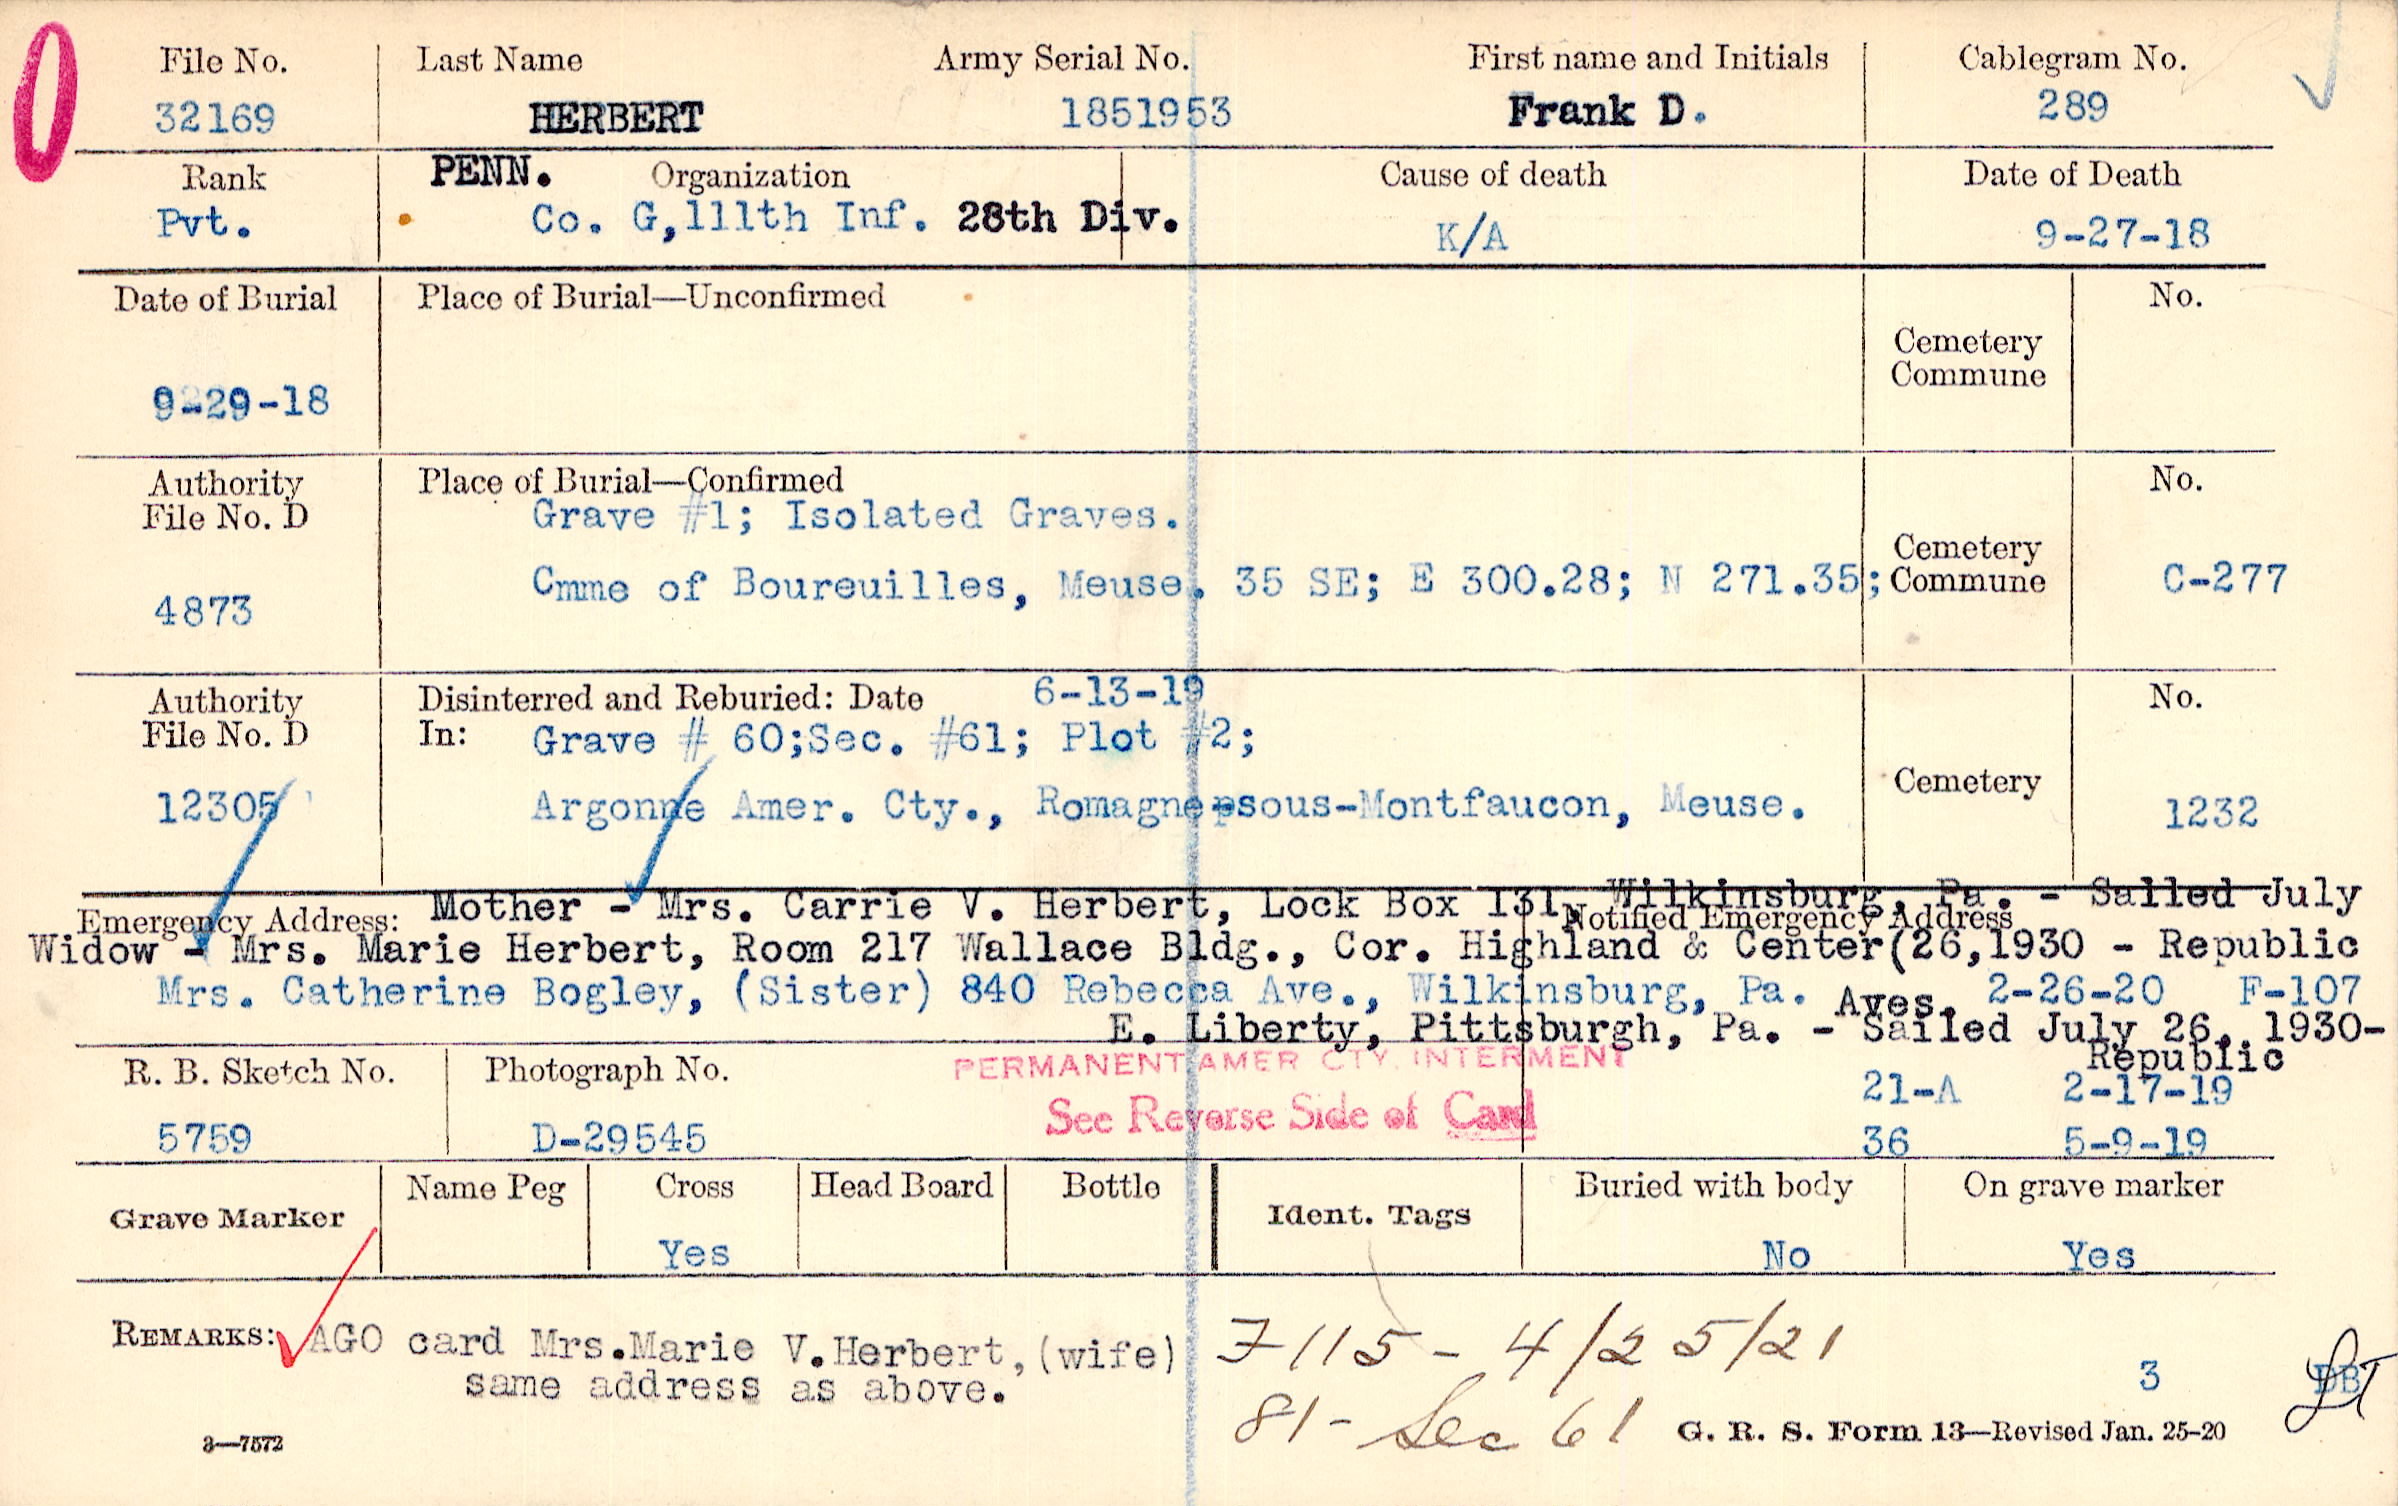 File No. Last Name Army Serial No. First name and Initials Cablegram No.
32169 HERBERT 1851953 Frank D. 289
Rank PENN. Organization Cause of death Date of Death
Pvt. Co. G,111th Inf. 28th Div. K/A 9-27-18
Date of Burial Place of Burial—Unconfirmed No.
Cemetery
Commune
9-29-18
Authority Place of Burial—Confirmed No.
File No. D Grave #1; Isolated Graves.
Cemetery
Cmme of Boureuilles, Meuse. 35 SE; E 300.28; N 271.35; Commune C-277
4873
Authority Disinterred and Reburied: Date 6-13-19 No.
File No. D In: Grave # 60;Sec. #61; Plot #2;
Cemetery
12305 Argonne Amer. Cty., Romagne-sous-Montfaucon, Meuse. 1232
Mother - Mrs. Carrie V. Herbert, Lock Box 131, Wilkinsburg, Pa. - Sailed July
Emergency Address: Notified Emergency Address
Widow - Mrs. Marie Herbert, Room 217 Wallace Bldg., Cor. Highland & Center(26,1930 - Republic
Mrs. Catherine Bogley, (Sister) 840 Rebecca Ave., Wilkinsburg, Pa. Aves. 2-26-20 F-107
E. Liberty, Pittsburgh, Pa. - Sailed July 26, 1930-
Republic
R. B. Sketch No. Photograph No. PERMANENT AMER CTY. INTERMENT
21-A 2-17-19
See Reverse Side of Card
5759 D-29545 36 5-9-19
Grave Marker Name Peg Cross Head Board Bottle Ident. Tags Buried with body On grave marker
Yes No Yes
REMARKS: AGO card Mrs.Marie V.Herbert,(wife) F115 - 4/25/21
same address as above. 3
81- Sec 61
3—7572 G. R. S. Form 13—Revised Jan. 25-20